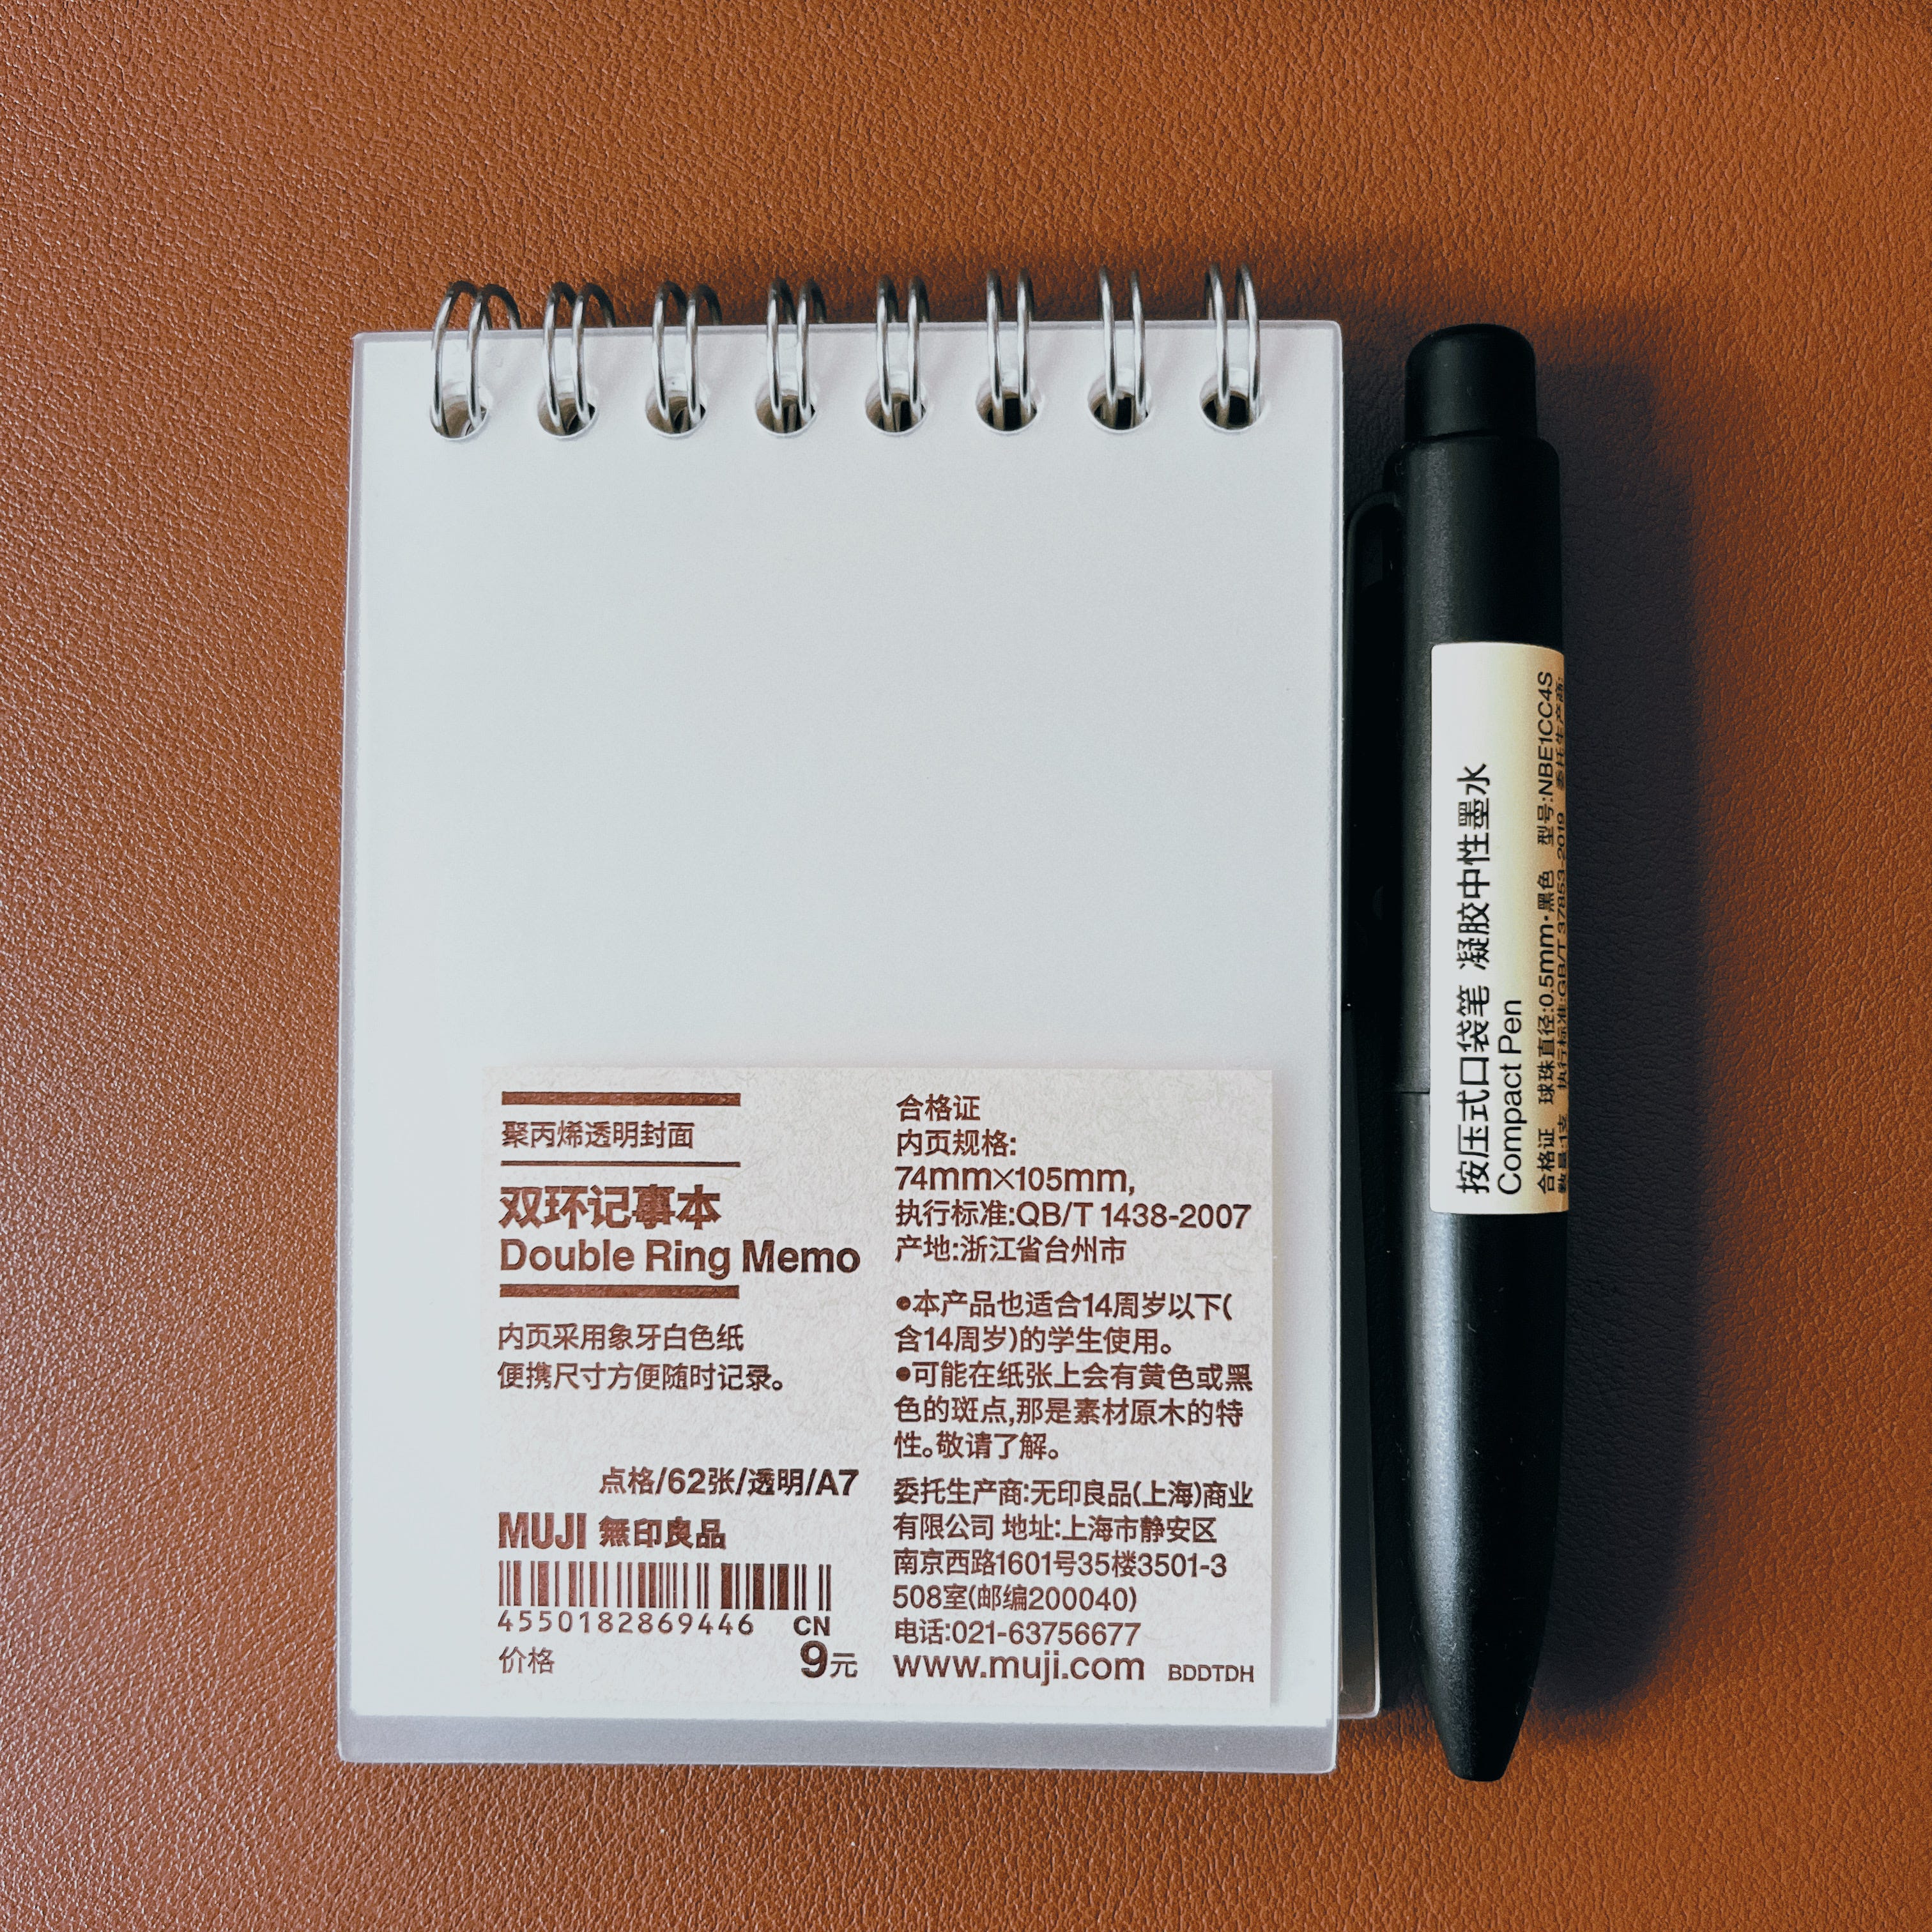 聚丙烯透明封面
双环记事本
Double Ring Memo
内页采用象牙白色纸
便携尺寸方便随时记录。
点格/62张/透明/A7
MUJI 無印良品
4550182869446 CN
价格 9元
合格证
内页规格:
74mm×105mm,
执行标准:QB/T 1438-2007
产地:浙江省台州市
•本产品也适合14周岁以下(
含14周岁)的学生使用。
•可能在纸张上会有黄色或黑
色的斑点,那是素材原木的特
性。敬请了解。
委托生产商:无印良品(上海)商业
有限公司 地址:上海市静安区
南京西路1601号35楼3501-3
508室(邮编200040)
电话:021-63756677
www.muji.com BDDTDH
按压式口袋笔 凝胶中性墨水
Compact Pen
合格证 球珠直径:0.5mm•黑色 型号:NBE1CC4S
数量:1支 执行标准:GB/T 37853-2019 委托生产商: